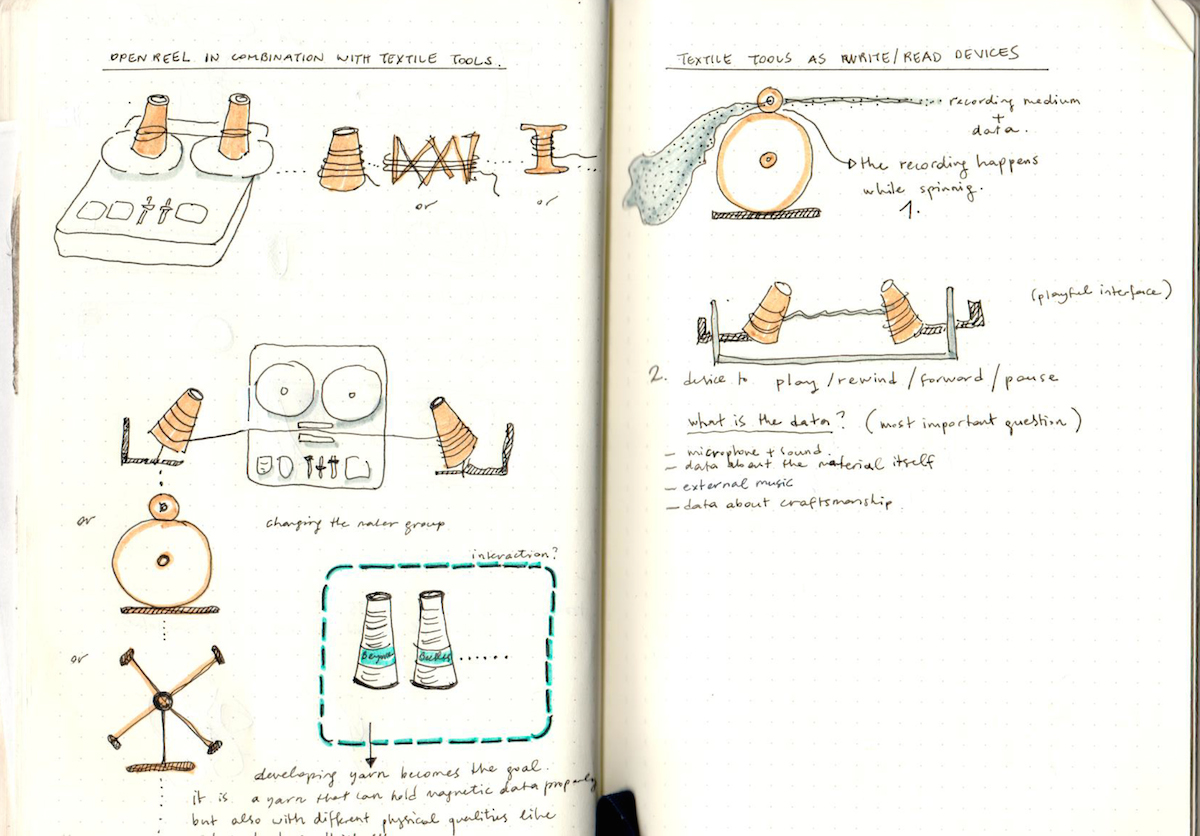 OPEN REEL IN COMBINATION WITH TEXTILE TOOLS.
or
or
or
changing the maker group
or
interaction?
developing yarn becomes the goal.
it is a yarn that can hold magnetic data properly
but also with different physical qualities like
TEXTILE TOOLS AS WRITE/READ DEVICES
recording medium
+
data.
the recording happens
while spinnig.
1.
(playful interface)
2. device to play/rewind/forward/pause
what is the data? (most important question)
- microphone + sound.
- data about the material itself
- external music
- data about craftsmanship.